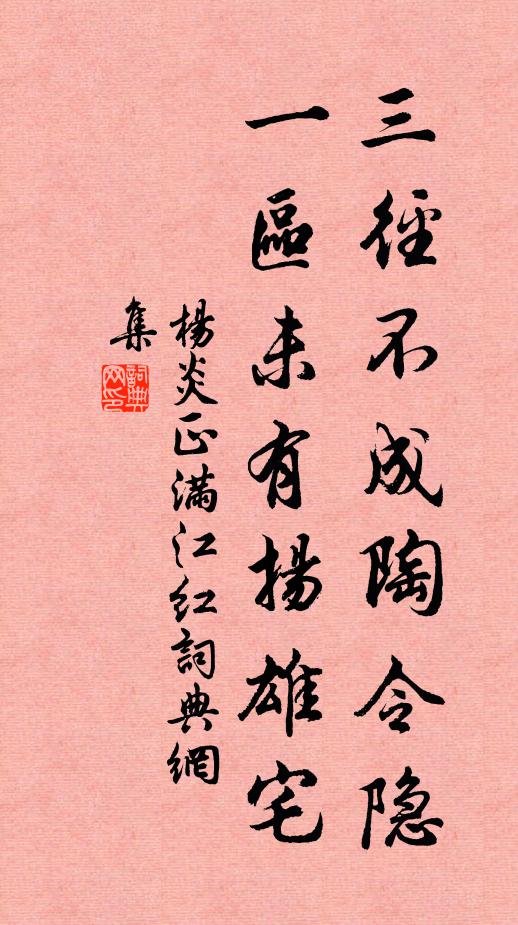 三徑不成陶令隐
一區未有揚雄宅
楊炎正满江红詞典網
集
詞典
网印